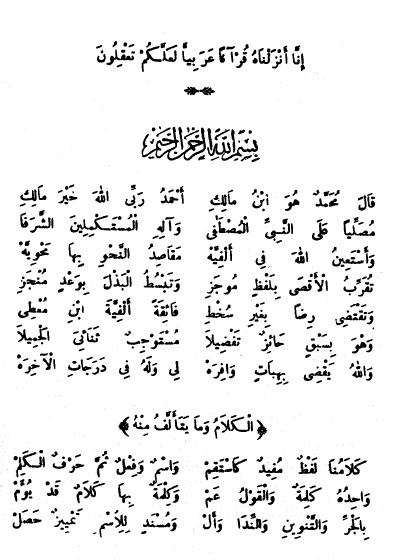 إِنَّا أَنْزَلْنَاهُ قُرْآنًا عَرَبِيًّا لَعَلَّكُمْ تَعْقِلُونَ
بِسْمِ اللَّهِ الرَّحْمَنِ الرَّحِيمِ
قَالَ مُحَمَّدٌ هُوَ ابْنُ مَالِكِ أَحْمَدُ رَبِّى اللهَ خَيْرَ مَالِكِ
مُصَلِّياً عَلَى النَّبِىِّ الْمُصْطَفَى وَآلِهِ الْمُسْتَكْمِلِينَ الشَّرَفَا
وَأَسْتَعِينُ اللهَ فِى أَلْفِيَّهْ مَقَاصِدُ النَّحْوِ بِهَا مَحْوِيَّهْ
تُقَرِّبُ الْأَقْصَى بِلَفْظٍ مُوجَزِ وَتَبْسُطُ الْبَذْلَ بِوَعْدٍ مُنْجَزِ
وَتَقْتَضِى رِضاً بِغَيْرِ سُخْطِ فَائِقَةً أَلْفِيَّةَ ابْنِ مُعْطِى
وَهْوَ بِسَبْقٍ حَائِزٌ تَفْضِيلاَ مُسْتَوْجِبٌ ثَنَائِىَ الْجَمِيلاَ
وَاللهُ يَقْضِى بِهِبَاتٍ وَافِرَهْ لِى وَلَهُ فِى دَرَجَاتِ الْآخِرَهْ
﴿ الْكَلاَمُ وَمَا يَتَأَلَّفُ مِنْهُ ﴾
كَلاَمُنَا لَفْظٌ مُفِيدٌ كَاسْتَقِمْ وَاسْمٌ وَفِعْلٌ ثُمَّ حَرْفٌ الْكَلِمْ
وَاحِدُهُ كَلِمَةٌ وَالْقَوْلُ عَمْ وَكِلْمَةٌ بِهَا كَلاَمٌ قَدْ يُؤَمْ
بِالْجَرِّ وَالتَّنْوِينِ وَالنِّدَا وَأَلْ وَمُسْنَدٍ لِلاِسْمِ تَمْيِيزٌ حَصَلْ